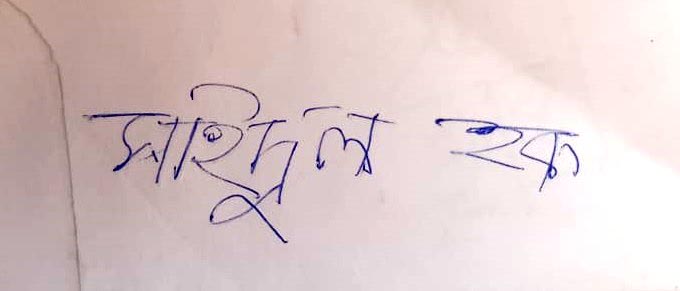 সাইদুল হক